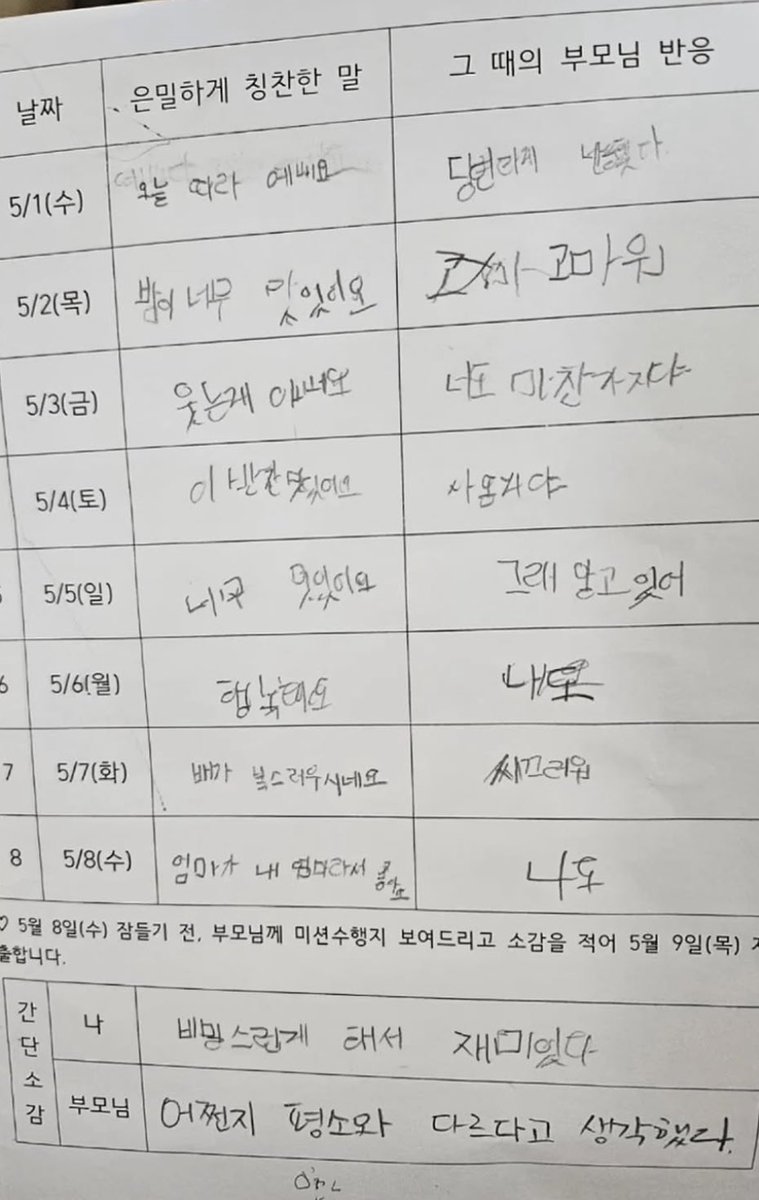 날짜 은밀하게 칭찬한 말 그 때의 부모님 반응
5/1(수) 오늘 따라 예뻐요
5/2(목) 밥이 너무 맛있어요 고마워
5/3(금) 웃는게 이뻐요 너도 마찬가지야
5/4(토) 이 반찬 맛있어요
5/5(일) 그래 알고 있어
6 5/6(월) 행복해요 내도
7 5/7(화) 배가 복스러우시네요 씨끄러워
8 5/8(수) 엄마가 내 엄마라서 좋아요 나도
♡ 5월 8일(수) 잠들기 전, 부모님께 미션수행지 보여드리고 소감을 적어 5월 9일(목)
출합니다.
간단소감
나 비밍스럽게 해서 재미있다
부모님 어쩐지 평소와 다르다고 생각했다.